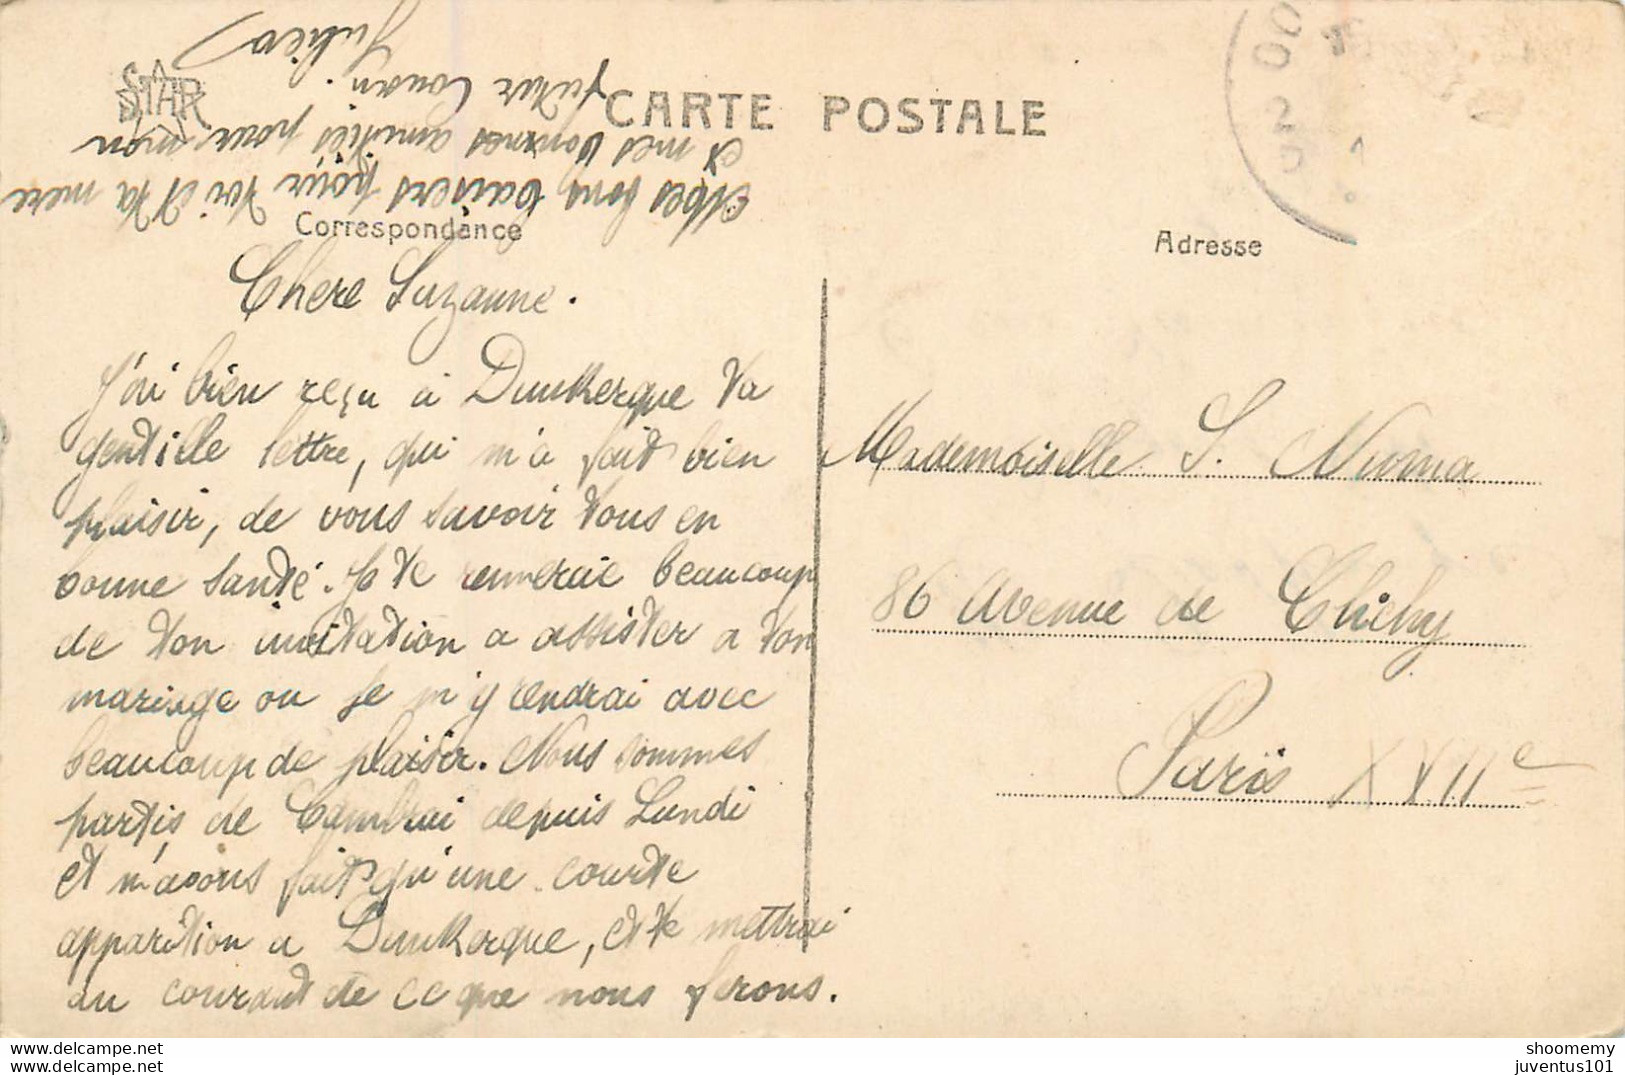 STAR
CARTE POSTALE
Correspondance
Adresse
Chere Suzanne.
J'ai bien reçu a Dunkerque ta
gentille lettre, qui m'a fait bien
plaisir, de vous savoir tous en
bonne santé. Je te remercie beaucoup
de ton invitation a assister a ton
mariage ou je m'y rendrai avec
beaucoup de plaisir. Nous sommes
partis de Cambrai depuis Lundi
et n'avons fait qu'une courte
apparition a Dunkerque, et te mettrai
au courant de ce que nous ferons.
Mes bons baisers pour toi et ta mere
et mes bonnes amitiés pour mon
futur Cousin.
Mademoiselle S. Numa
86 Avenue de Clichy
Paris XVIIe
shoomemy
juventus101